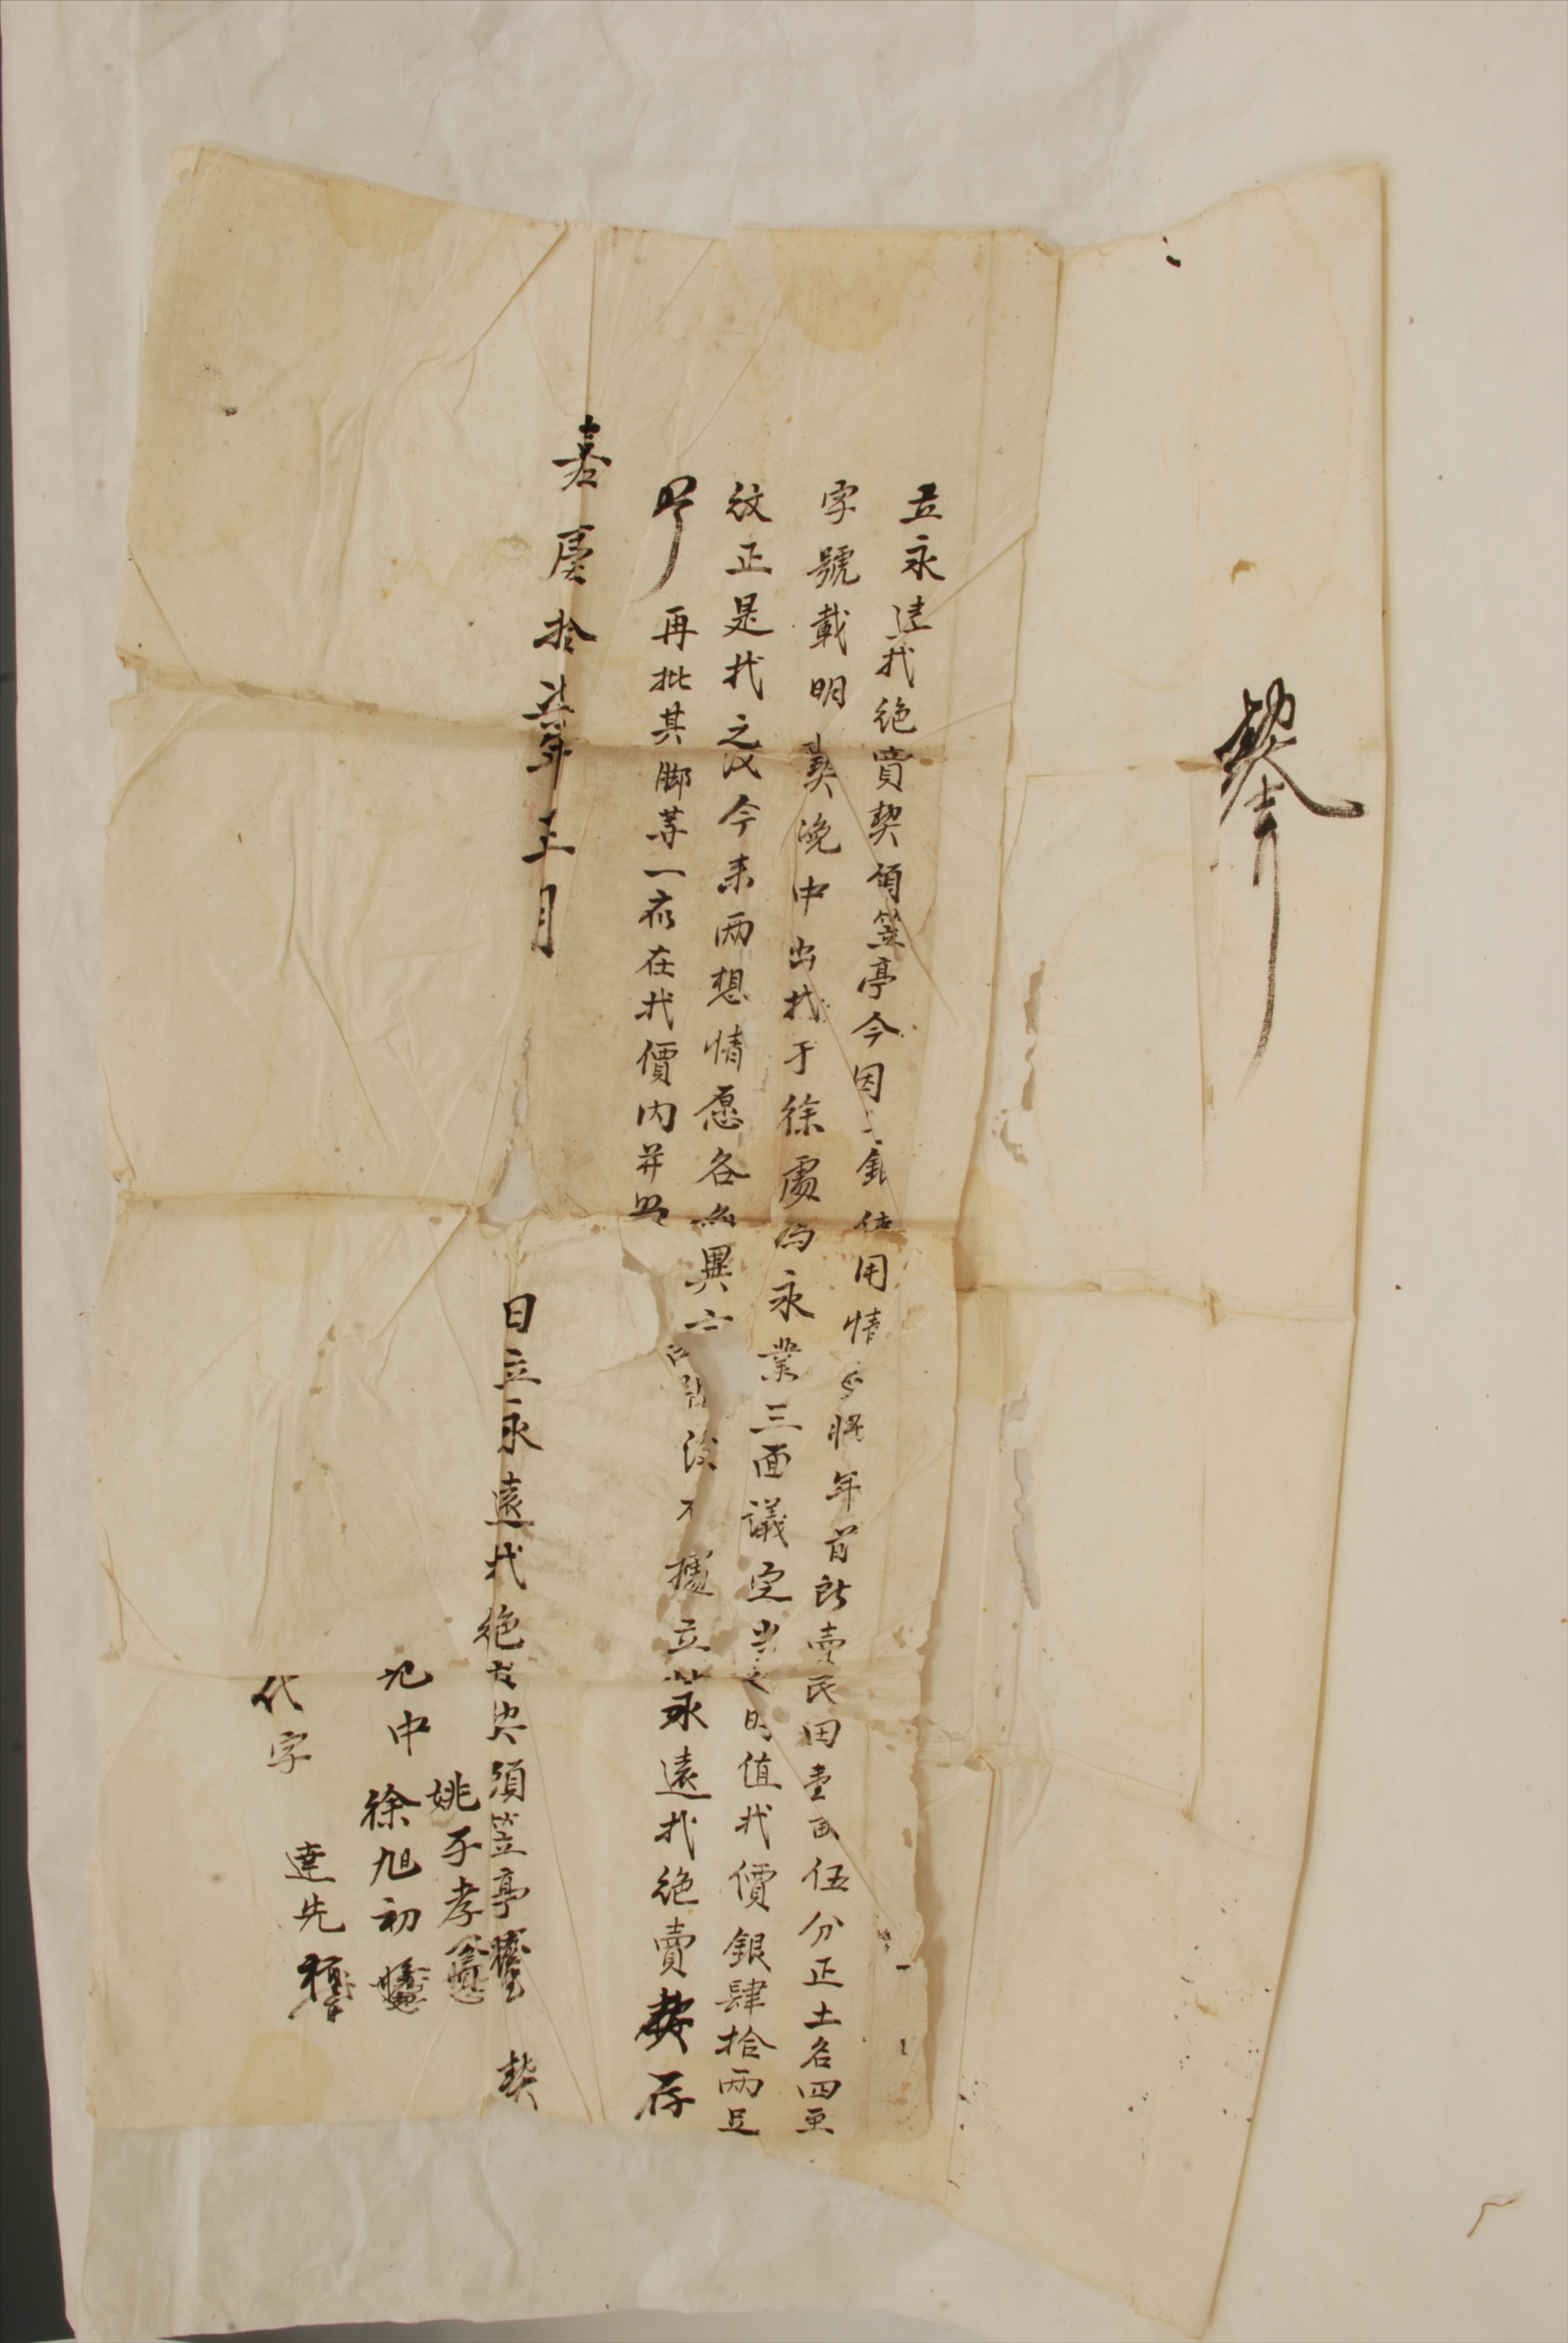 契
立永遠找絕賣契須笠亭今因銀使用情將年前所賣民田壹畝伍分正土名四至
字號載明契浼中出找于徐處為永業三面議定當日值找價銀肆拾兩足
紋正是找之後今來兩想情愿各無異言後不據立永遠找絕賣契存
照 再批其脚等一應在找價內并照
嘉慶拾柒年三月 日立永遠找絕賣契須笠亭 契
姚子孝
見中 徐旭初
代字 達先